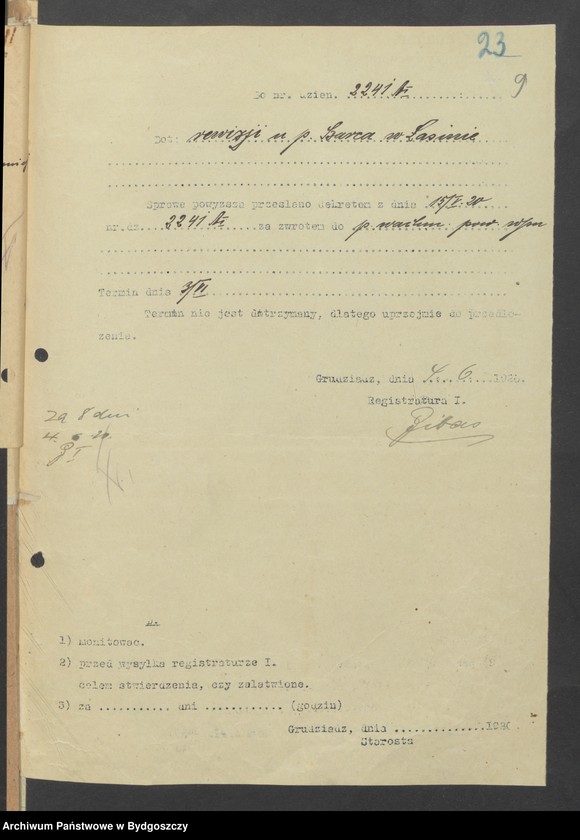 23
9
Do nr. dzien. 2241
Dot: rewizji u p. Barca w Łasinie
Sprawę powyższą przesłano dekretem z dnia 15/V. 20
nr.dz. 2241 za zwrotem do p. pow.
Termin dnia 3/VI
Termin nie jest dotrzymany, dlatego uprzejmie do przedło-
żenia.
Grudziadz, dnia 4. 6. 1920.
Registratura I.
za 8 dni
4. 6 20.
1) Monitowac.
2) przed wysyłką registraturze I.
celem stwierdzenia, czy załatwione.
3) za ........... dni ............ (godzin)
Grudziadz, dnia ..............1920
Starosta
Archiwum Państwowe w Bydgoszczy